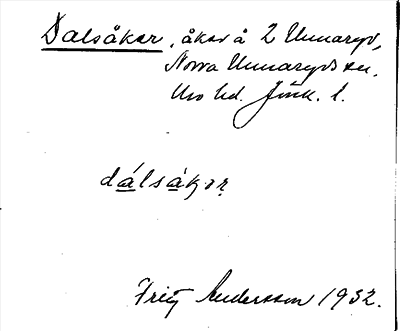 Dalsåker, åker å 2 Unnaryd,
Norra Unnaryds sn.
Mo hd. Jönk. l.
dálsàkər
Fritz Andersson 1932.